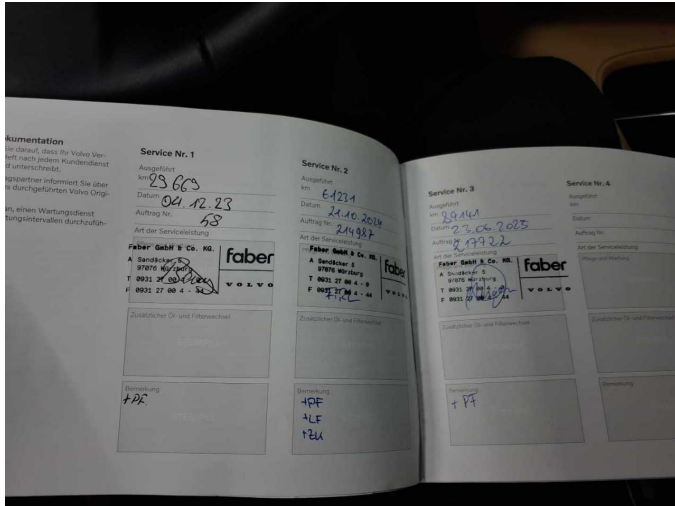 kumentation
Sie darauf, dass Ihr Volvo Ver-
Heft nach jedem Kundendienst
d unterschreibt.
gspartner informiert Sie über
s durchgeführten Volvo Origi-
an, einen Wartungsdienst
tungsintervallen durchzufüh-
Service Nr. 1
Ausgeführt
km 29 669
Datum 04.12.23
Auftrag Nr. 58
Art der Serviceleistung
Faber GmbH & Co. KG.
A Sandäcker 5
97076 Würzburg
T 0931 27 00 4 - 0
F 0931 27 00 4 - 44
faber
VOLVO
Zusätzlicher Öl- und Filterwechsel
Bemerkung
+PF
Service Nr. 2
Ausgeführt
km 61231
Datum 21.10.2024
Auftrag Nr. 214987
Art der Serviceleistung
Faber GmbH & Co. KG.
A Sandäcker 5
97076 Würzburg
T 0931 27 00 4 - 0
F 0931 27 00 4 - 44
faber
VOLVO
Zusätzlicher Öl- und Filterwechsel
Bemerkung
+PF
+LF
+ZK
Service Nr. 3
Ausgeführt
km 89141
Datum 23.06.2025
Auftrag Nr. 217722
Art der Serviceleistung
Faber GmbH & Co. KG.
A Sandäcker 5
97076 Würzburg
T 0931 27 00 4 - 0
F 0931 27 00 4 - 44
faber
VOLVO
Zusätzlicher Öl- und Filterwechsel
Bemerkung
+ PF
Service Nr. 4
Ausgeführt
km
Datum
Auftrag Nr.
Art der Serviceleistung
Zusätzlicher Öl- und Filterwechsel
Bemerkung